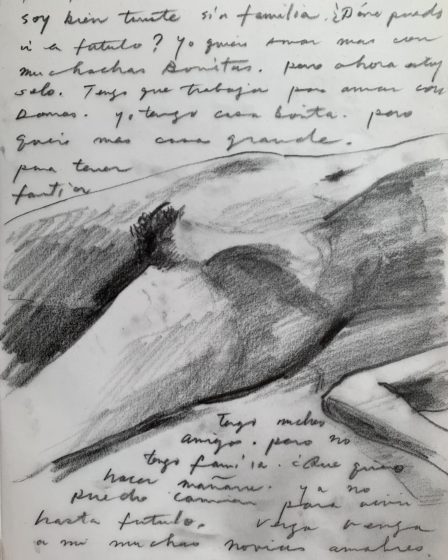 soy bien triste sin familia. ¿Dónde puedo
ir a futulo? Yo quiero amar mas con
muchachas Bonitas. pero ahora estoy
solo. Tengo que trabajar para amar con
Damas. yo tengo casa bonita. pero
quiero mas casa grande.
para tener
Tengo muchos
amigos. pero no
tengo familia. ¿Que quiero
hacer mañana. ya no
puedo caminar para
hasta futulo. Venga Venga
a mi muchas novias